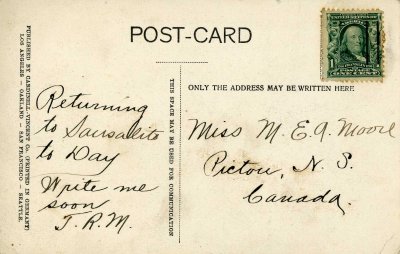 POST-CARD
PUBLISHED BY CARDINELL VINCENT Co. (PRINTED IN GERMANY)
LOS ANGELES - OAKLAND - SAN FRANCISCO - SEATTLE.
THIS SPACE MAY BE USED FOR COMMUNICATION
ONLY THE ADDRESS MAY BE WRITTEN HERE
1 1
ONE CENT
Returning
to Sausalito
to Day
Write me
soon
J.R.M.
Miss M. E. A. Moore
Pictou, N. S.
Canada.